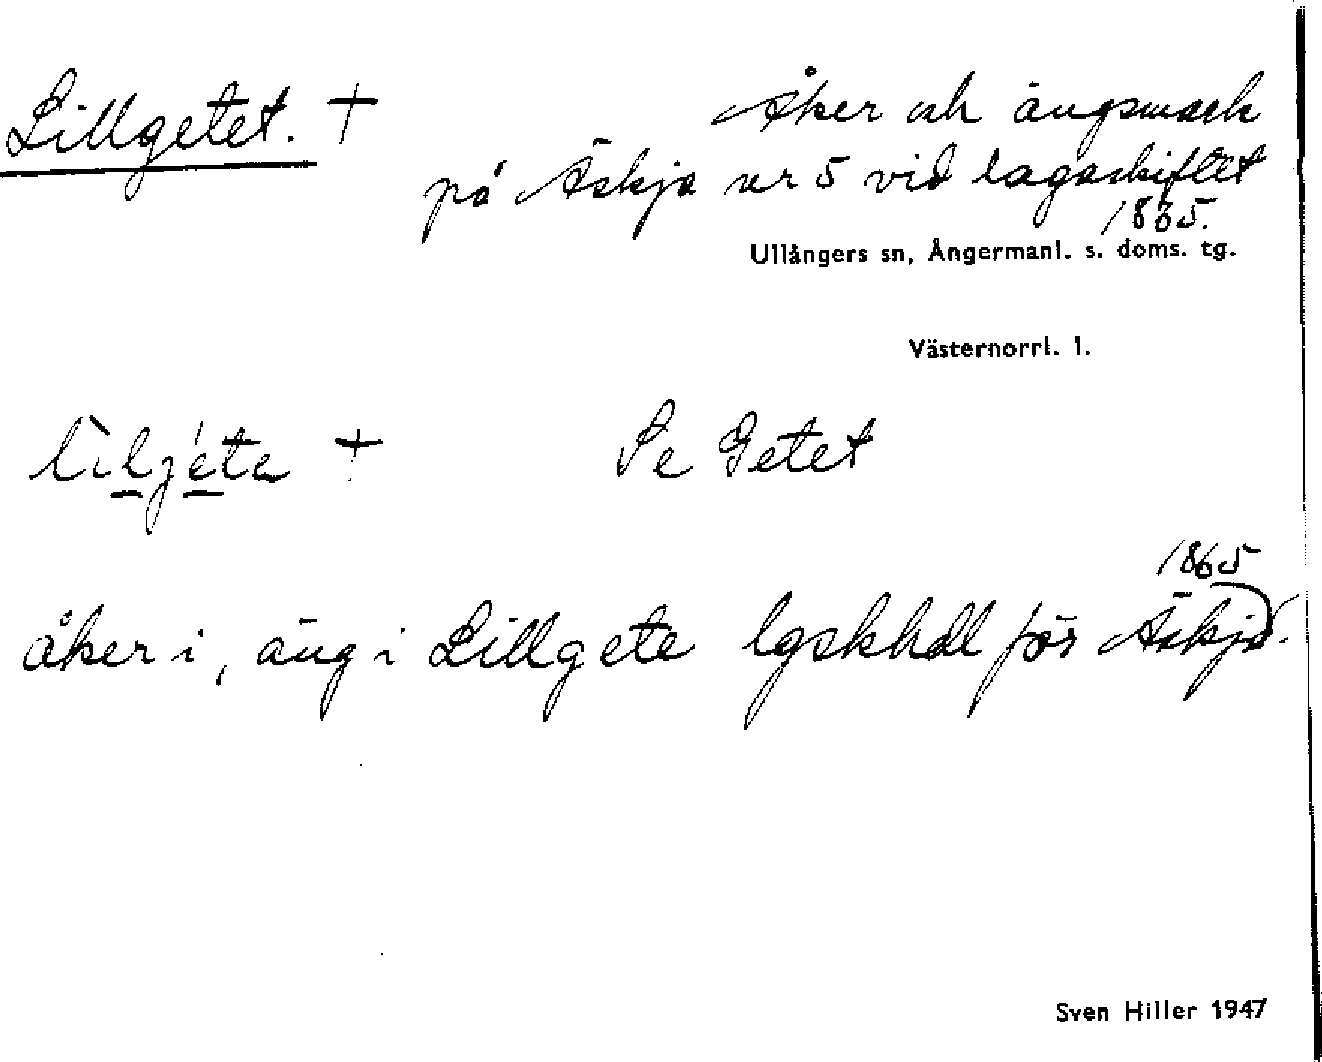 Lillgetet. + Åker och ängsmark
på Äskja nr 5 vid lagaskiftet
1865.
Ullångers sn, Ångermanl. s. doms. tg.
Västernorrl. l.
lìljéte + Se Getet
1865
åker i, äng i Lillgete lgskhdl för Äskja.
Sven Hiller 1947